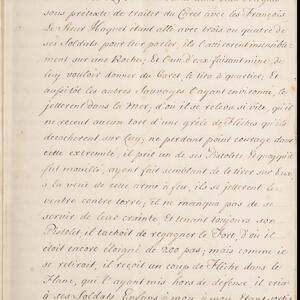 sous prétexte de traiter du Caret avec les François
Le Sieur Haquet étant allé avec trois ou quatre de
ses Soldats pour leur parler, ils l'attirerent insensible-
ment sur une Roche; Et l'un d'eux faisant mine, de
luy vouloir donner du Caret, le tira à quartier; Et
aussitôt les autres Sauvages l'ayant environné, le
jetterent dans la Mer, d'où il se releva si vite, qu'il
ne receut aucun tort d'une grêle de Fléches qu'ils
decocherent sur Luy, ne perdant point courage dans
cette extremité, il prit un de ses Pistolets Et quoyqu'il
fut mouillé, ayant fait semblant de le tirer sur Eux
à la veüe de cette arme à feu, ils se jetterent le
ventre contre terre; il ne manqua pas de se
servir de leur crainte Et tenant toujours son
Pistolet, il tachoit de regagner le Fort, d'où il
étoit encore éloigné de 200 pas; mais comme il
se retiroit, il reçoit un coup de Fléche dans le
Flanc, qui l'ayant mis hors de defense il cria
à ses Soldats Enfans à moy, à moy